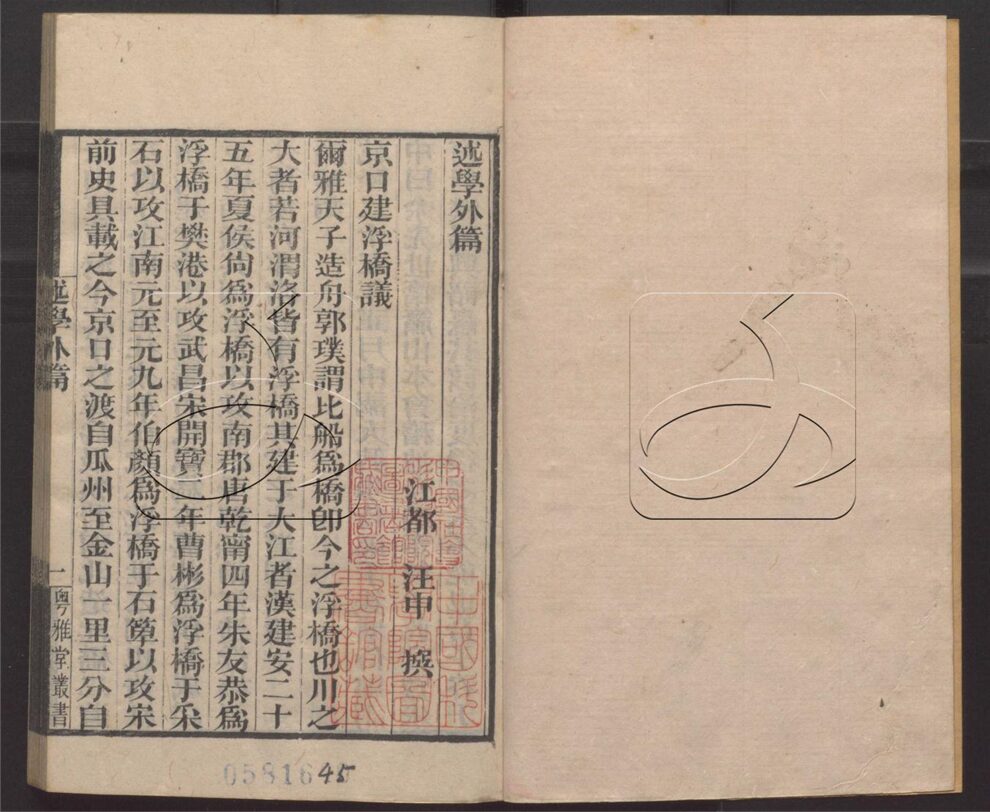 述學外篇
江都 汪中 撰
京口建浮橋議
爾雅天子造舟郭璞謂比船爲橋卽今之浮橋也川之
大者若河渭洛皆有浮橋其建于大江者漢建安二十
五年夏侯尙爲浮橋以攻南郡唐乾甯四年朱友恭爲
浮橋于樊港以攻武昌宋開寶二年曹彬爲浮橋于采
石以攻江南元至元九年伯顏爲浮橋于石簰以攻宋
前史具載之今京口之渡自瓜州至金山一里三分自
述學外篇
一
粵雅堂叢書
0581645